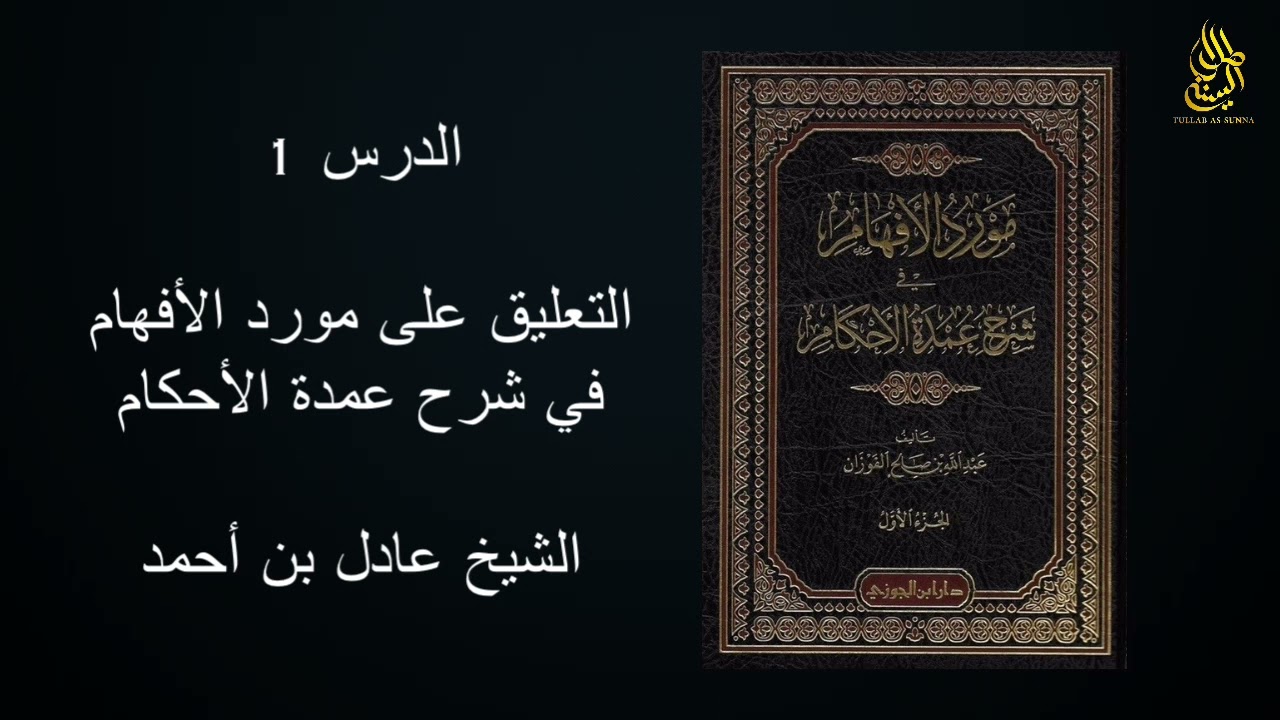 الدرس 1
التعليق على مورد الأفهام
في شرح عمدة الأحكام
الشيخ عادل بن أحمد
مَوْرِدُ الأَفْهَامِ
في
شَرْحِ عُمْدَةِ الأَحْكَامِ
تأليف
عَبْدُ اللهِ بْن صَالِح الفَوْزَان
الجُزْءُ الأَوَّلُ
دار ابن الجوزي
طلاب السنة
TULLAB AS SUNNA